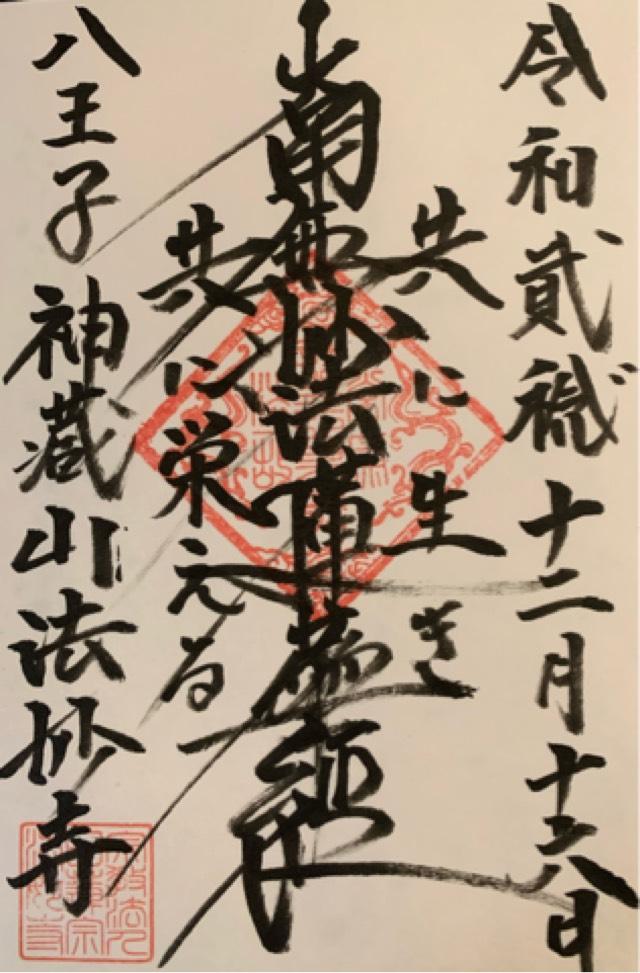 令和貳禩十二月十六日
共に生き
南無妙法蓮華経
共に栄える
八王子 神蔵山法妙寺